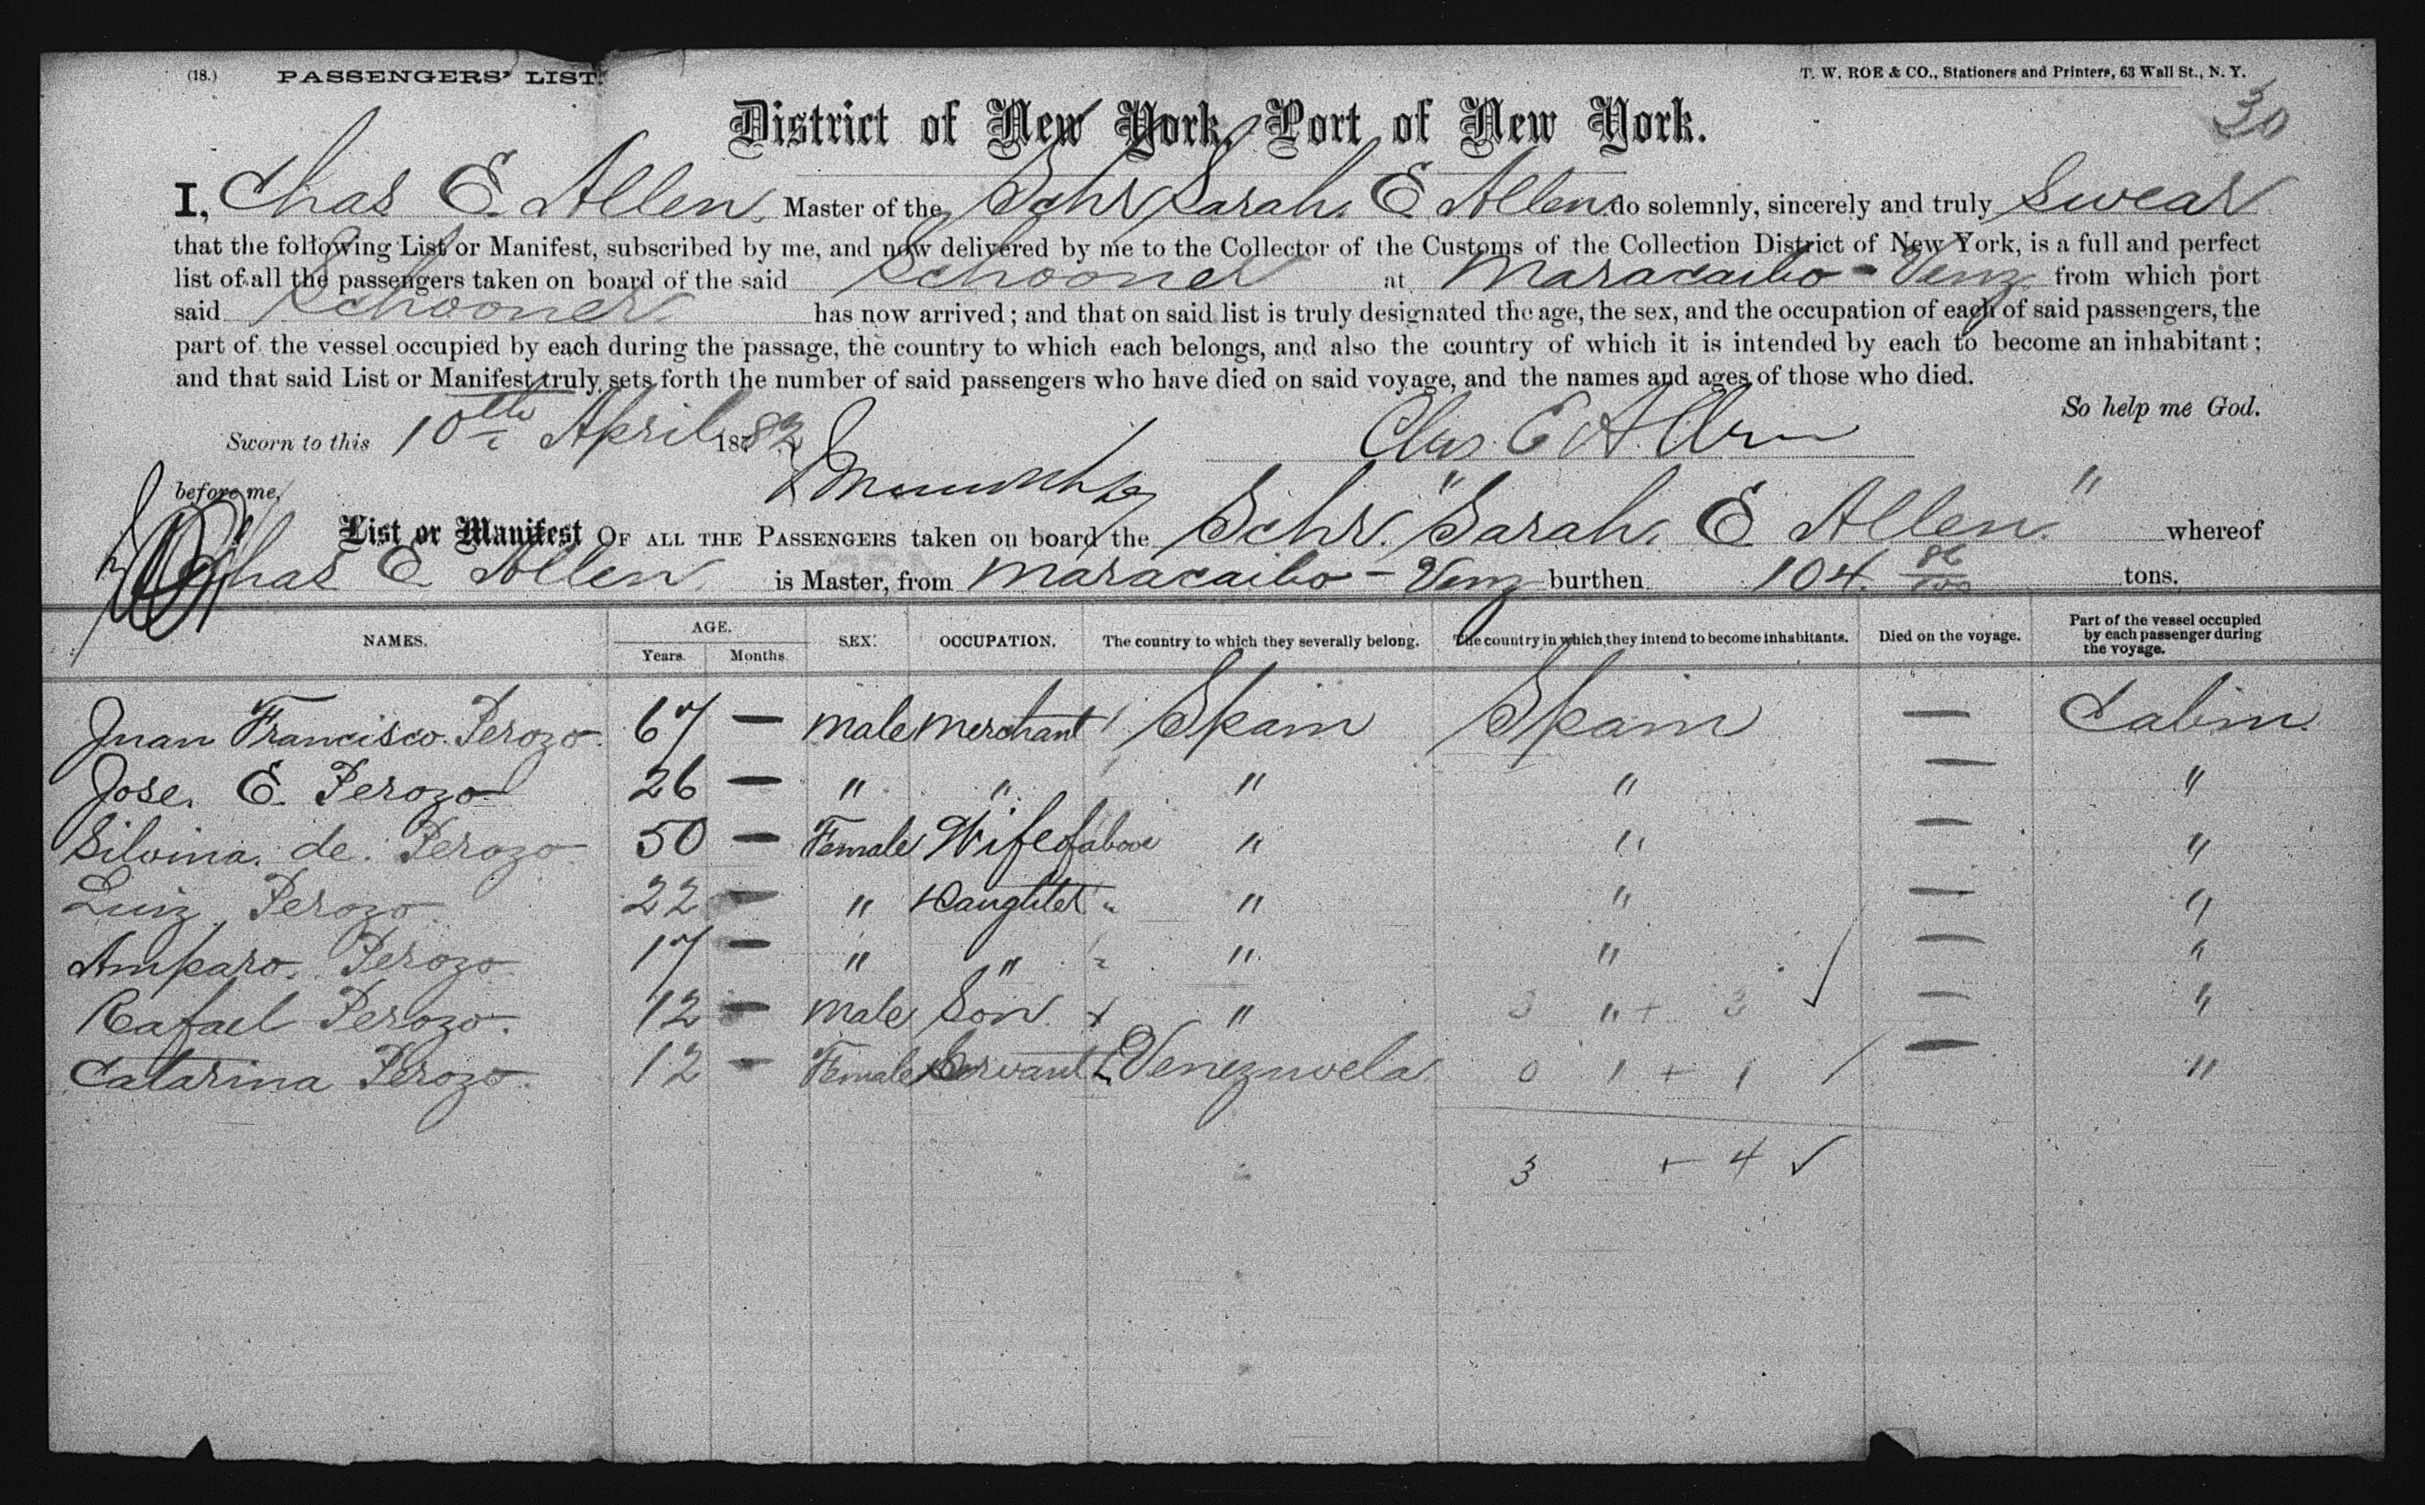 (18.) PASSENGERS' LIST. T. W. ROE & CO., Stationers and Printers, 63 Wall St., N. Y.
30
District of New York, Port of New York.
I, Chas E. Allen, Master of the Schr Sarah E Allen do solemnly, sincerely and truly Swear
that the following List or Manifest, subscribed by me, and now delivered by me to the Collector of the Customs of the Collection District of New York, is a full and perfect
list of all the passengers taken on board of the said Schooner at Maracaibo - Venz from which port
said Schooner has now arrived; and that on said list is truly designated the age, the sex, and the occupation of each of said passengers, the
part of the vessel occupied by each during the passage, the country to which each belongs, and also the country of which it is intended by each to become an inhabitant;
and that said List or Manifest truly sets forth the number of said passengers who have died on said voyage, and the names and ages of those who died.
So help me God.
Sworn to this 10th April 1882 Chas E Allen
before me,
List or Manifest OF ALL THE PASSENGERS taken on board the Schr. "Sarah E Allen" whereof
Chas E Allen is Master, from Maracaibo - Venz burthen 104 86/100 tons.
NAMES. AGE. Years. Months. SEX. OCCUPATION. The country to which they severally belong. The country in which they intend to become inhabitants. Died on the voyage. Part of the vessel occupied by each passenger during the voyage.
Juan Francisco Perozo 67 — Male Merchant Spain Spain — Cabin
Jose E. Perozo 26 — " " " " — "
Silvina de Perozo 50 — Female Wife of above " " — "
Luiz Perozo 22 — " Daughter " " " — "
Amparo Perozo 17 — " " " " — "
Rafael Perozo 12 — Male Son + " 3 " + 3 — "
Catarina Perozo 12 — Female Servant Venezuela 0 1 + 1 — "
3 + 4 ✓